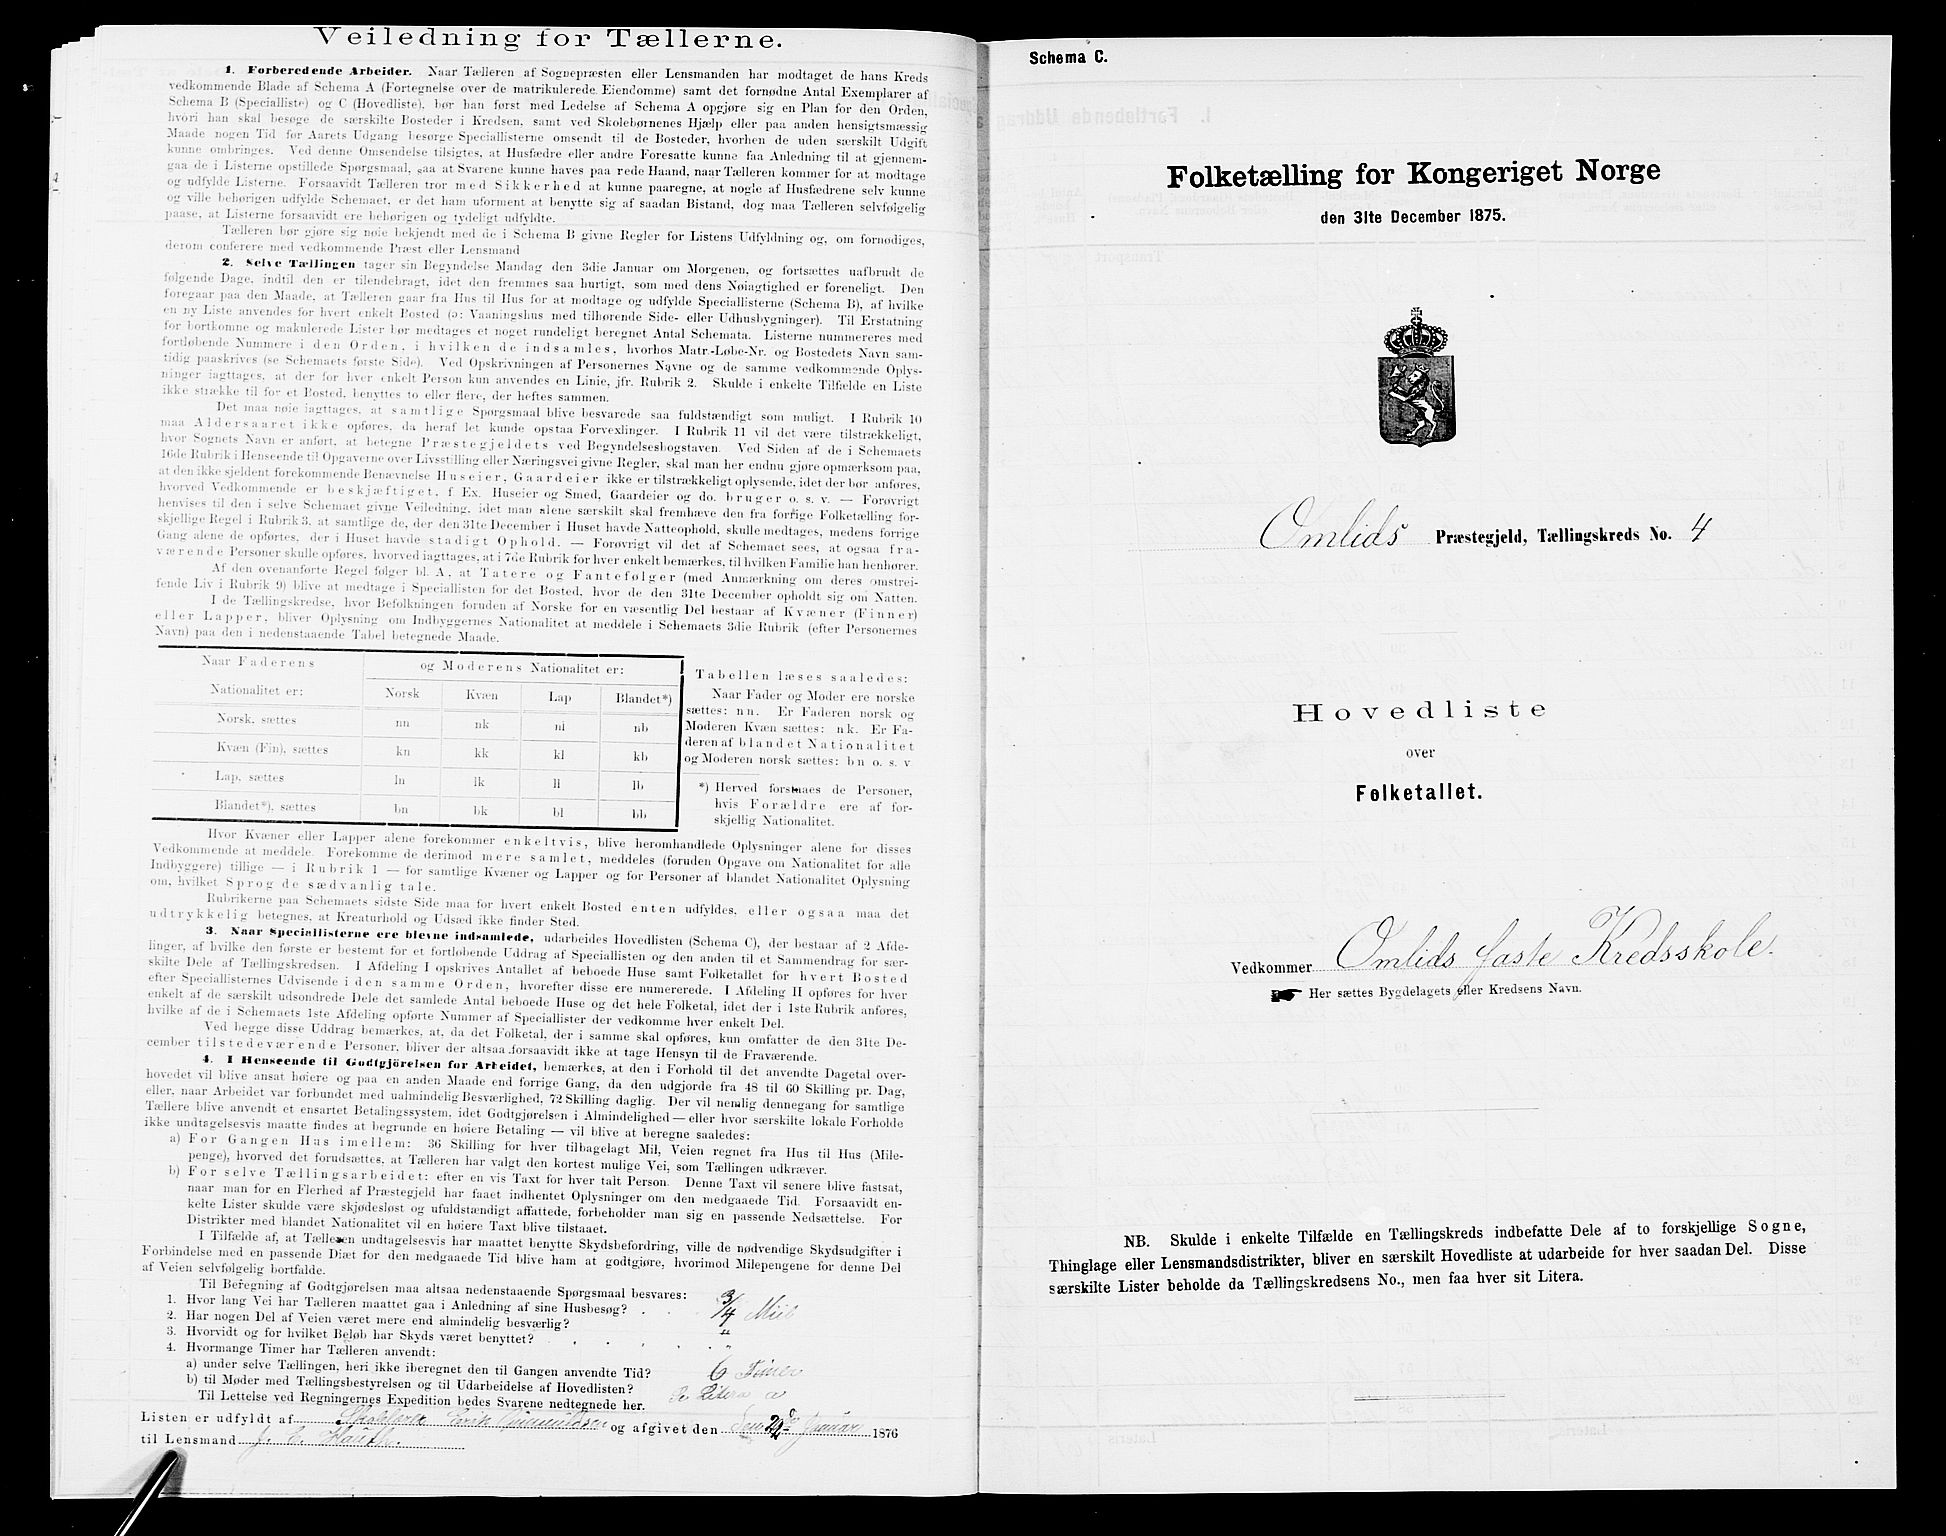 Veiledning for Tællerne.
1. Forberedende Arbeider. Naar Tælleren af Sognepræsten eller Lensmanden har modtaget de hans Kreds
vedkommende Blade af Schema A (Fortegnelse over de matrikulerede Eiendomme) samt det fornødne Antal Exemplarer af
Schema B (Specialliste) og C (Hovedliste), bør han først med Ledelse af Schema A opgjøre sig en Plan for den Orden,
hvori han skal besøge de særskilte Bosteder i Kredsen, samt ved Skolebørnenes Hjælp eller paa anden hensigtsmæssig
Maade nogen Tid før Aarets Udgang besørge Speciallisterne omsendt til de Bosteder, hvorhen de uden særskilt Udgift
kunne ombringes. Ved denne Omsendelse tilsigtes, at Husfædre eller andre Foresatte kunne faa Anledning til at gjennem-
gaa de i Listerne opstillede Spørgsmaal, saa at Svarene kunne haves paa rede Haand, naar Tælleren kommer for at modtage
og udfylde Listerne. Forsaavidt Tælleren tror med Sikkerhed at kunne paaregne, at nogle af Husfædrene selv kunne
og ville behørigen udfylde Schemaet, er det ham uforment at benytte sig af saadan Bistand, dog maa Tælleren selvfølgelig
paase, at Listerne forsaavidt ere behørigen og tydeligt udfyldte.
Tælleren bør gjøre sig nøie bekjendt med de i Schema B givne Regler for Listens Udfyldning og, om fornødiges,
derom conferere med vedkommende Præst eller Lensmand
2. Selve Tællingen tager sin Begyndelse Mandag den 3die Januar om Morgenen, og fortsættes uafbrudt de
følgende Dage, indtil den er tilendebragt, idet den fremmes saa hurtigt, som med dens Nøiagtighed er foreneligt. Den
foregaar paa den Maade, at Tælleren gaar fra Hus til Hus for at modtage og udfylde Speciallisterne (Schema B), af hvilke
en ny Liste anvendes for hvert enkelt Bosted (ɔ: Vaaningshus med tilhørende Side- eller Udhusbygninger). Til Erstatning
for bortkomne og makulerede Lister bør medtages et noget rundeligt beregnet Antal Schemata. Listerne nummereres med
fortløbende Nummere i den Orden, i hvilken de indsamles, hvorhos Matr.-Løbe-Nr. og Bostedets Navn sam-
tidig paaskrives (se Schemaets første Side). Ved Opskrivningen af Personernes Navne og de samme vedkommende Oplys-
ninger iagttages, at der for hver enkelt Person kun anvendes en Linie, jfr. Rubrik 2. Skulde i enkelte Tilfælde en Liste
ikke strække til for et Bosted, benyttes to eller flere, der heftes sammen.
Det maa nøie iagttages, at samtlige Spørgsmaal blive besvarede saa fuldstændigt som muligt. I Rubrik 10
maa Aldersaaret ikke opføres, da heraf let kunde opstaa Forvexlinger. I Rubrik 11 vil det være tilstrækkeligt,
hvor Sognets Navn er anført, at betegne Præstegjeldets ved Begyndelsesbogstaven. Ved Siden af de i Schemaets
16de Rubrik i Henseende til Opgaverne over Livsstilling eller Næringsvei givne Regler, skal man her endnu gjøre opmærksom paa,
at den ikke sjeldent forekommende Benævnelse Huseier, Gaardeier ikke er tilstrækkeligt oplysende, idet der bør anføres,
hvorved Vedkommende er beskjæftiget, f Ex. Huseier og Smed, Gaardeier og do. bruger o. s. v. — Forøvrigt
henvises til den i selve Schemaet givne Veiledning, idet man alene særskilt skal fremhæve den fra forrige Folketælling for-
skjellige Regel i Rubrik 3, at samtlige de, der den 31te December i Huset havde Natteophold, skulle medtages, medens forrige
Gang alene de opførtes, der i Huset havde stadigt Ophold. — Forøvrigt vil det af Schemaet sees, at ogsaa fra-
værende Personer skulle opføres, hvorved iagttages, at i 7de Rubrik for hver enkelt bemærkes, til hvilken Familie han henhører.
Af den ovenanførte Regel følger bl. A., at Tatere og Fantefølger (med Anmærkning om deres omstrei-
fende Liv i Rubrik 9) blive at medtage i Speciallisten for det Bosted, hvor de den 31te December opholdt sig om Natten.
I de Tællingskredse, hvor Befolkningen foruden af Norske for en væsentlig Del bestaar af Kvæner (Finner)
eller Lapper, bliver Oplysning om Indbyggernes Nationalitet at meddele i Schemaets 3die Rubrik (efter Personernes
Navn) paa den i nedenstaaende Tabel betegnede Maade.
Naar Faderens og Moderens Nationalitet er:
Nationalitet er: Norsk Kvæn Lap Blandet*)
Norsk, sættes nn nk nl nb
Kvæn (Fin), sættes kn kk kl kb
Lap, sættes ln lk ll lb
Blandet*), sættes bn bk bl bb
Tabellen læses saaledes:
Naar Fader og Moder ere norske
sættes: nn. Er Faderen norsk og
Moderen Kvæn sættes: nk. Er Fa-
deren af blandet Nationalitet
og Moderen norsk sættes: bn o. s. v
*) Herved forstaaes de Personer,
hvis Forældre ere af for-
skjellig Nationalitet.
Hvor Kvæner eller Lapper alene forekommer enkeltvis, blive heromhandlede Oplysninger alene for disses
Vedkommende at meddele. Forekomme de derimod mere samlet, meddeles (foruden Opgave om Nationalitet for alle
Indbyggere) tillige — i Rubrik 1 — for samtlige Kvæner og Lapper og for Personer af blandet Nationalitet Oplysning
om, hvilket Sprog de sædvanlig tale.
Rubrikerne paa Schemaets sidste Side maa for hvert enkelt Bosted enten udfyldes, eller ogsaa maa det
udtrykkelig betegnes, at Kreaturhold og Udsæd ikke finder Sted.
3. Naar Speciallisterne ere blevne indsamlede, udarbeides Hovedlisten (Schema C), der bestaar af 2 Afde-
linger, af hvilke den første er bestemt for et fortløbende Uddrag af Speciallisten og den anden til et Sammendrag for sær-
skilte Dele af Tællingskredsen. I Afdeling I opskrives Antallet af beboede Huse samt Folketallet for hvert Bosted
efter Speciallisternes Udvisende i den samme Orden, hvorefter disse ere numererede. I Afdeling II opføres for hver
enkelt af de særskilt udsondrede Dele det samlede Antal beboede Huse og det hele Folketal, idet der i 1ste Rubrik anføres,
hvilke af de i Schemaets 1ste Afdeling opførte Nummer af Speciallister der vedkomme hver enkelt Del.
Ved begge disse Uddrag bemærkes, at, da det Folketal, der i samme skal opføres, kun omfatter de den 31te De-
cember tilstedeværende Personer, bliver der altsaa forsaavidt ikke at tage Hensyn til de Fraværende.
4. I Henseende til Godtgjörelsen for Arbeidet, bemærkes, at den i Forhold til det anvendte Dagetal over-
hovedet vil blive ansat høiere og paa en anden Maade end forrige Gang, da den udgjorde fra 48 til 60 Skilling pr. Dag,
eller, naar Arbeidet var forbundet med ualmindelig Besværlighed, 72 Skilling daglig. Der vil nemlig dennegang for samtlige
Tællere blive anvendt et ensartet Betalingssystem, idet Godtgjörelsen i Almindelighed — eller hvor særskilte lokale Forholde
ikke undtagelsesvis maatte findes at begrunde en høiere Betaling — vil blive at beregne saaledes:
a) For Gangen Hus imellem: 36 Skilling for hver tilbagelagt Mil, Veien regnet fra Hus til Hus (Mile-
penge), hvorved det forudsættes, at Tælleren har valgt den kortest mulige Vei, som Tællingen udkræver.
b) For selve Tællingsarbeidet: efter en vis Taxt for hver talt Person. Denne Taxt vil senere blive fastsat,
naar man for en Flerhed af Præstegjeld har faaet indhentet Oplysninger om den medgaaede Tid. Forsaavidt en-
kelte Lister skulde være skjødesløst og ufuldstændigt affattede, forbeholder man sig en passende Nedsættelse. For
Distrikter med blandet Nationalitet vil en høiere Taxt blive tilstaaet.
I Tilfælde af, at Tælleren undtagelsesvis har maattet benytte Skydsbefordring, ville de nødvendige Skydsudgifter i
Forbindelse med en passende Diæt for den medgaaede Tid blive ham at godtgjøre, hvorimod Milepengene for denne Del
af Veien selvfølgelig bortfalde.
Til Beregning af Godtgjørelsen maa altsaa nedenstaaende Spørgsmaal besvares:
1. Hvor lang Vei har Tælleren maattet gaa i Anledning af sine Husbesøg? 3/4 Miil
2. Har nogen Del af Veien været mere end almindelig besværlig? "
3. Hvorvidt og for hvilket Beløb har Skyds været benyttet? "
4. Hvormange Timer har Tælleren anvendt:
a) under selve Tællingen, heri ikke iberegnet den til Gangen anvendte Tid? 6 Timer
b) til Møder med Tællingsbestyrelsen og til Udarbeidelse af Hovedlisten? Se Litera a
Til Lettelse ved Regningernes Expedition bedes Svarene nedtegnede her.
Listen er udfyldt af Erik og afgivet den Januar 1876
til Lensmand J. E.
Schema C.
Folketælling for Kongeriget Norge
den 31te December 1875.
Omlids Præstegjeld, Tællingskreds No. 4
Hovedliste
over
Folketallet.
Vedkommer Omlids faste Kredsskole.
Her sættes Bygdelagets eller Kredsens Navn.
NB. Skulde i enkelte Tilfælde en Tællingskreds indbefatte Dele af to forskjellige Sogne,
Thinglage eller Lensmandsdistrikter, bliver en særskilt Hovedliste at udarbeide for hver saadan Del. Disse
særskilte Lister beholde da Tællingskredsens No., men faa hver sit Litera.